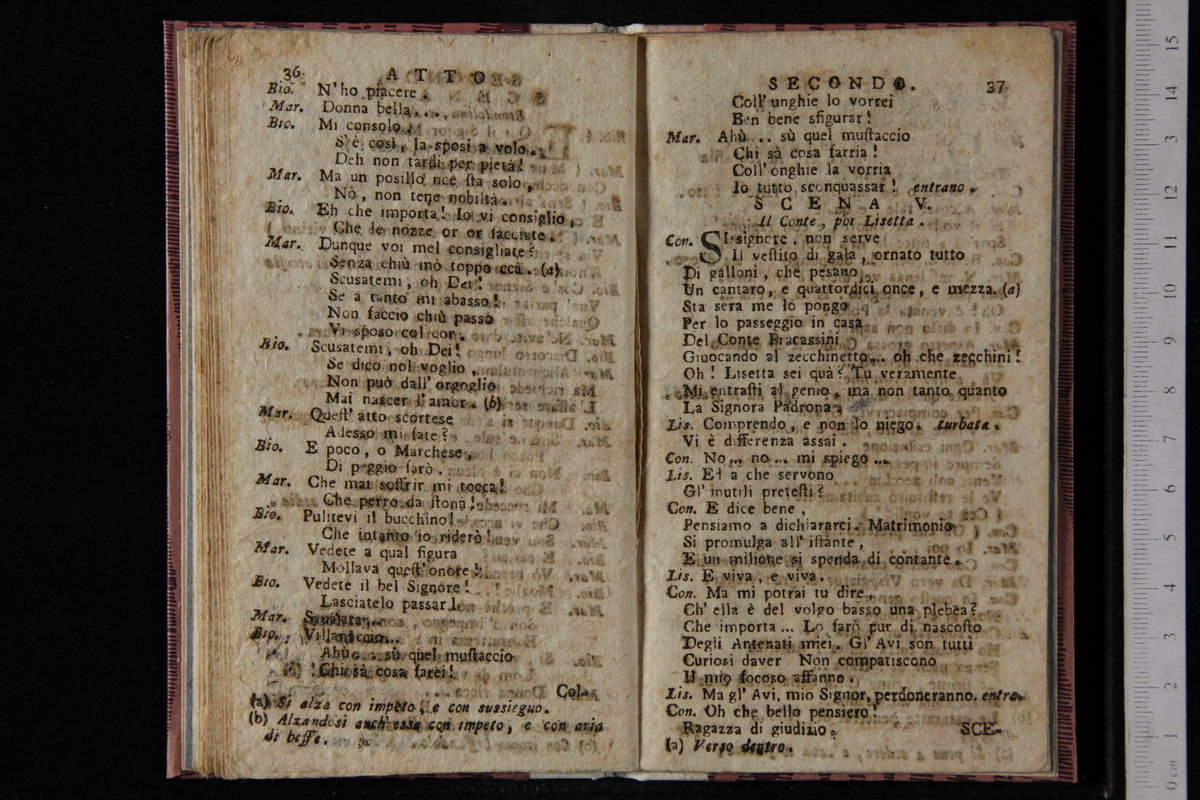 36 ATTO
Bio. N'ho piacere.
Mar. Donna bella...
Bio. Mi consolo,
S'è così, la sposi a volo.
Deh non tardi per pietà!
Mar. Ma un posillo nce sta solo,
Nò, non tene nobiltà.
Bio. Eh che importa! Io vi consiglio,
Che le nozze or or facciate.
Mar. Dunque voi mel consigliate?
Senza chiù mò toppo ccà. (a)
Scusatemi, oh Dei!
Se a tanto mi abasso!
Non faccio chiù passo
Vi sposo col cor.
Bio. Scusatemi, oh Dei!
Se dico nol voglio,
Non può dall' orgoglio
Mai nascer l'amor. (b)
Mar. Quest' atto scortese
Adesso mi fate?
Bio. E poco, o Marchese,
Di peggio farò.
Mar. Che mai soffrir mi tocca!
Che perro da stona!
Bio. Pulitevi il bucchino!
Che intanto io riderò!
Mar. Vedete a qual figura
Mollava quest' onore!
Bio. Vedete il bel Signore!
Lasciatelo passar!
Mar.
Bio. Villanaccio...
Ahù... sù quel mustaccio
Chi sà cosa farei!
Col-
(a) Si alza con impeto, e con sussieguo.
(b) Alzandosi anch' essa con impeto, e con aria
di beffe.
SECONDO. 37
Coll' unghie lo vorrei
Ben bene sfigurar!
Mar. Ahù .. sù quel mustaccio
Chi sà cosa farria!
Coll' onghie la vorria
Io tutto sconquassar! entrano.
SCENA V.
Il Conte, poi Lisetta.
Con. SIsignore, non serve
Il vestito di gala, ornato tutto
Di galloni, che pesano
Un cantaro, e quattordici once, e mezza. (a)
Sta sera me lo pongo
Per lo passeggio in casa
Del Conte Fracassini
Giuocando al zecchinetto... oh che zecchini!
Oh! Lisetta sei quà? Tu veramente
Mi entrasti al genio, ma non tanto quanto
La Signora Padrona.
Lis. Comprendo, e non lo niego. turbata.
Vi è differenza assai.
Con. No... no... mi spiego...
Lis. Ed a che servono
Gl' inutili pretesti?
Con. E dice bene,
Pensiamo a dichiararci. Matrimonio
Si promulga all' istante,
E un milione si spenda di contante.
Lis. E viva, e viva.
Con. Ma mi potrai tu dire,
Ch' ella è del volgo basso una plebea?
Che importa... Lo farò pur di nascosto
Degli Antenati miei. Gl' Avi son tutti
Curiosi daver Non compatiscono
Il mio focoso affanno.
Lis. Ma gl' Avi, mio Signor, perdoneranno. entra.
Con. Oh che bello pensiero!
Ragazza di giudizio.
SCE-
(a) Verso dentro.